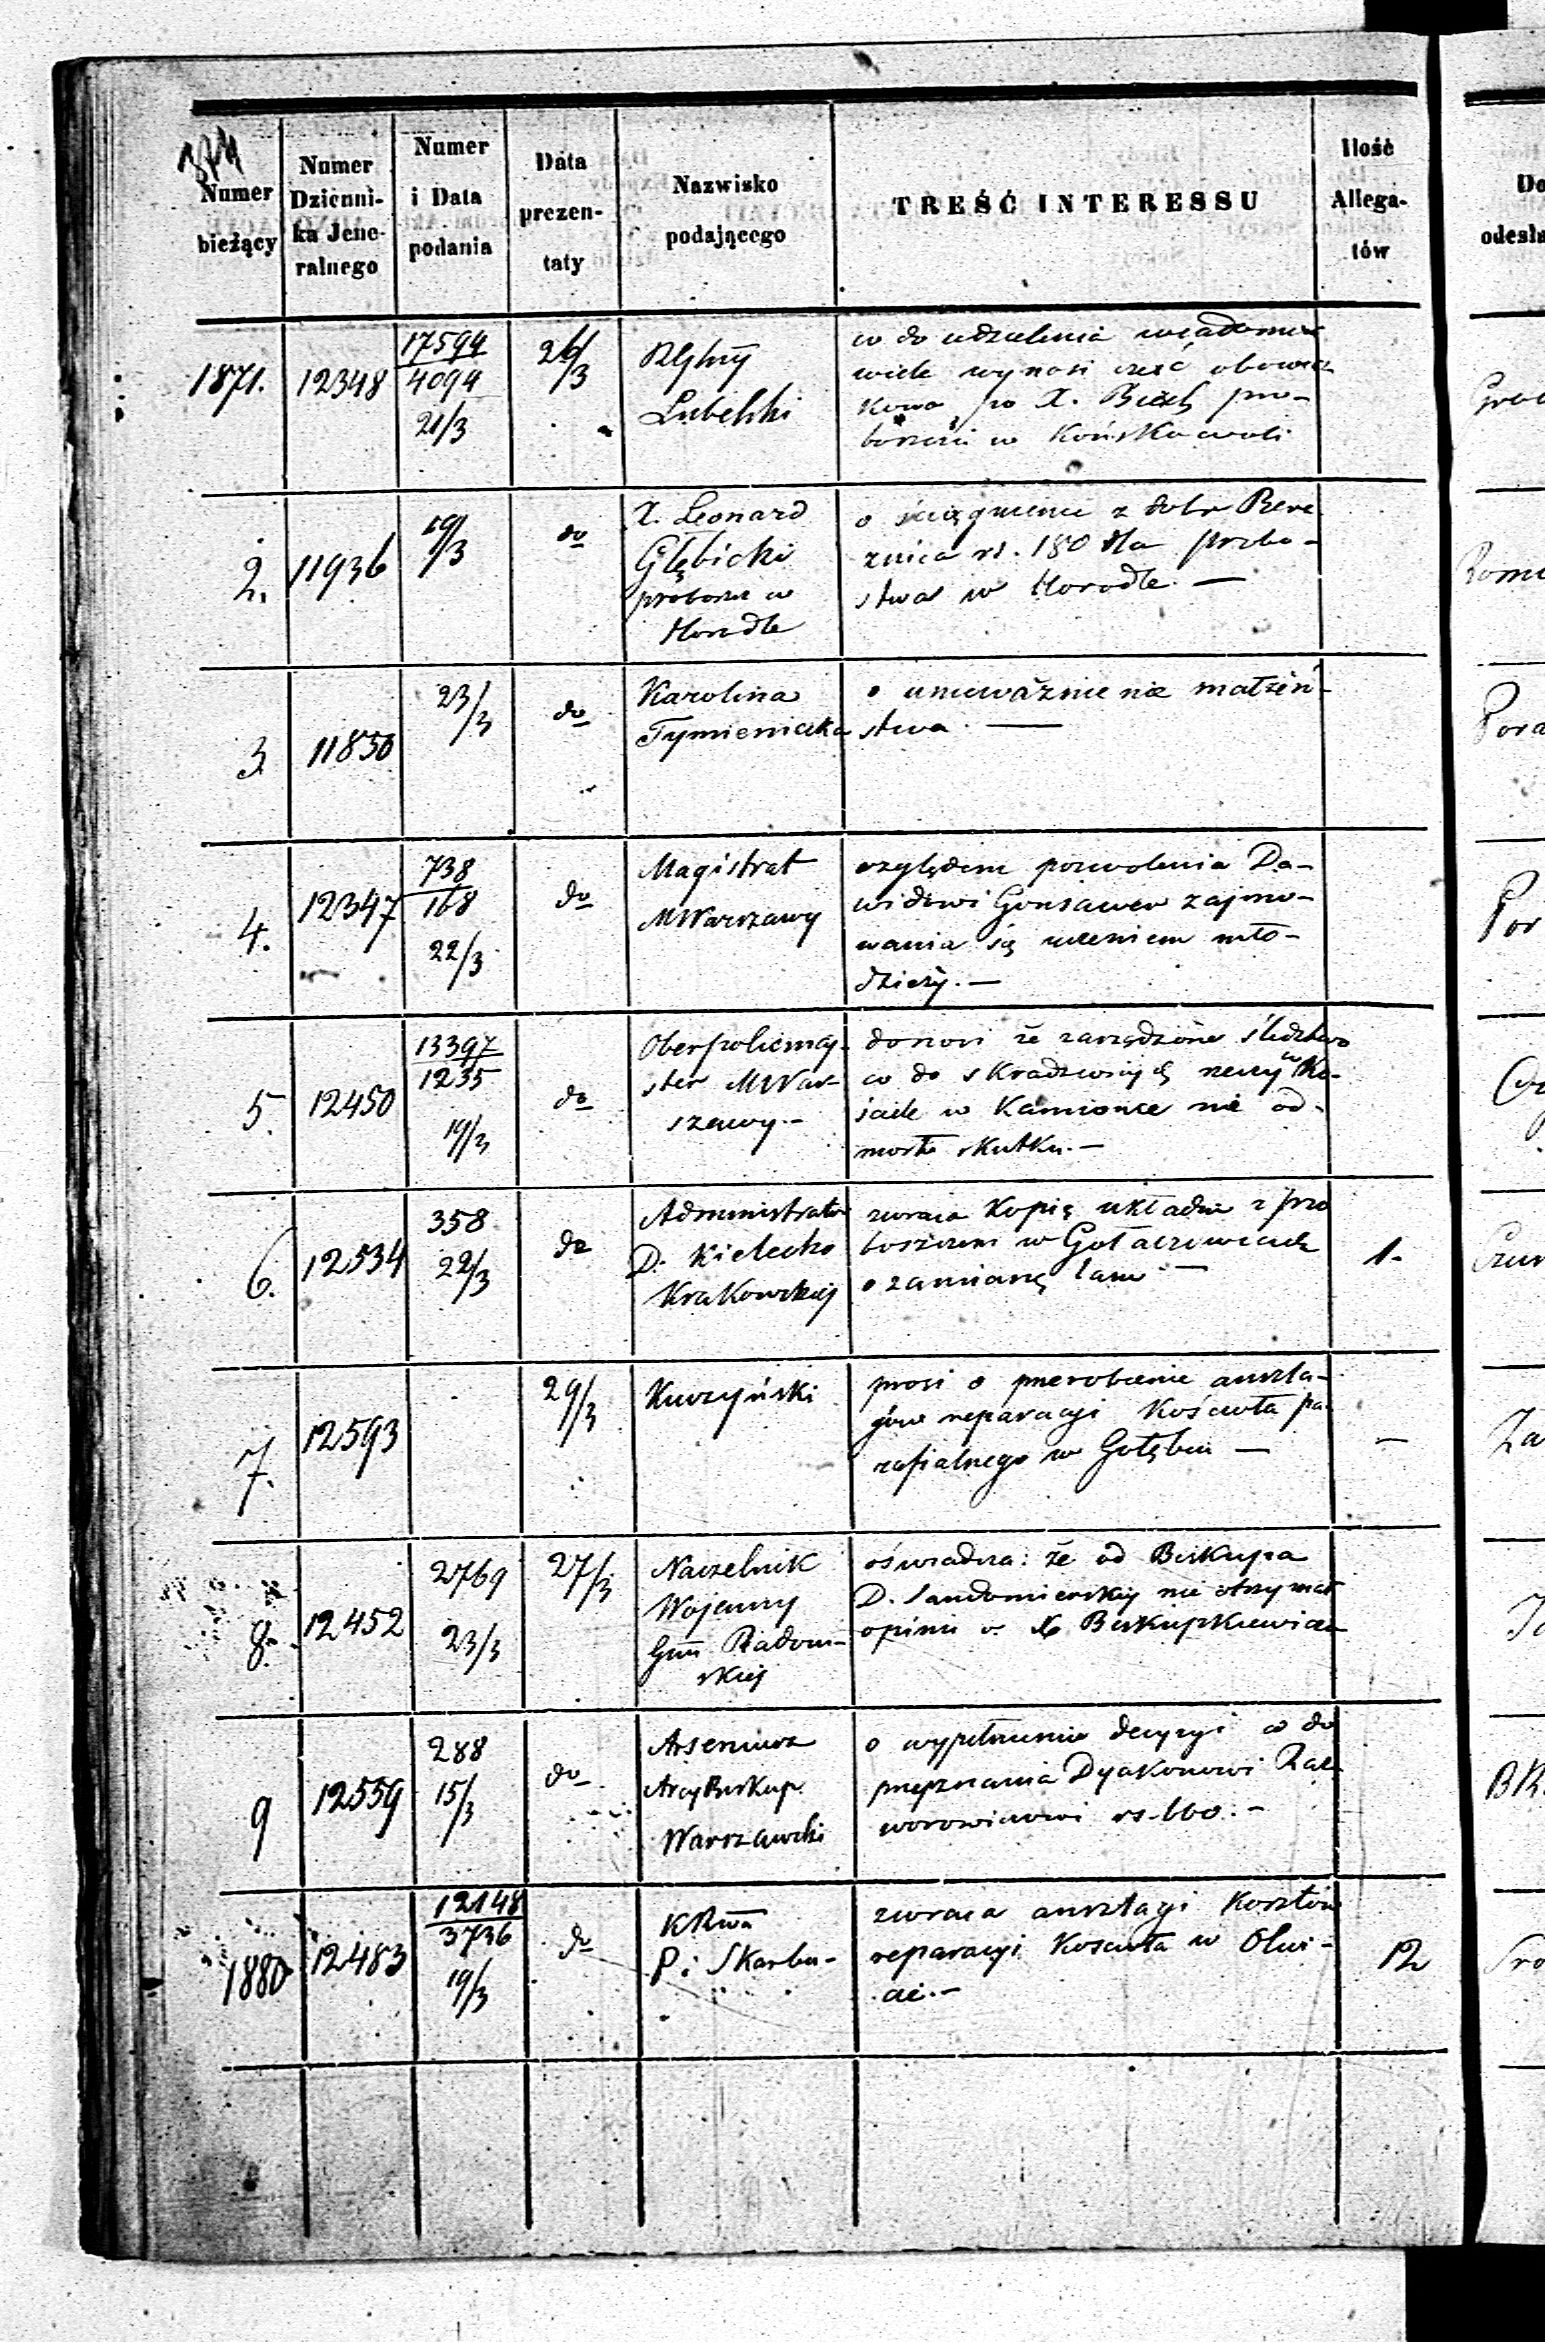 374
Numer bieżący
Numer Dzienni-ka Jene-ralnego
Numer i Data podania
Data prezen-taty
Nazwisko podającego
TREŚĆ INTERESSU
Ilość Allega-tów
1871. 12348 17594/4094 21/3 26/3
Lubelski
co do udzielenia
wiele wynosi część
po X. pro-
w Końskowoli
2. 11936 19/3 do
X. Leonard
Głębicki
proboszcz w
Horodle
o ściągnienie z dobr Bere
znica rs. 180 dla probo-
stwa w Horodle. —
3. 11850 23/3 do
Karolina
Tymieniecka
o unieważnienie małżeń-
stwa. —
4. 12347 738/168 22/3 do
Magistrat
MWarszawy
względem pozwolenia Da-
widowi zajmo-
wania się uczeniem mło-
dzieży. —
5. 12450 13397/1235 19/3 do
Oberpolicmaj-
ster MWar-
szawy. —
donosi że zarządzone śledztwo
co do skradzionych rzeczy w Ko-
ściele w Kamionce nie od-
niosło skutku. —
6. 12534 358 22/3 do
Administrator
D. Kielecko
Krakowskiej
zwraca kopię układu z pro
boszczem w Gołaczewicach
o zamianę łanu — 1.
7. 12593 29/3
Kuczyński
prosi o przerobienie anszla-
gów reparacyi Kościoła pa-
rafialnego w Gołębiu — —
8. 12452 2769 23/3 27/3
Naczelnik
Wojenny
Gun Radom-
skiej
oświadcza: że od Biskupa
D. Sandomierskiej nie otrzymał
opinii o X Biskupkiewicza
9 12559 288 15/3 do
Arseniusz
ArcyBiskup
Warszawski
o wypełnienie decyzyi co do
przyznania Dyakonowi
rs. 660. —
1880 12483 12148/3736 19/3 do
KRwa
P: i Skarbu-
zwraca anszlagi kosztów
reparacyi Kościoła w Olwi-
cie. — 12